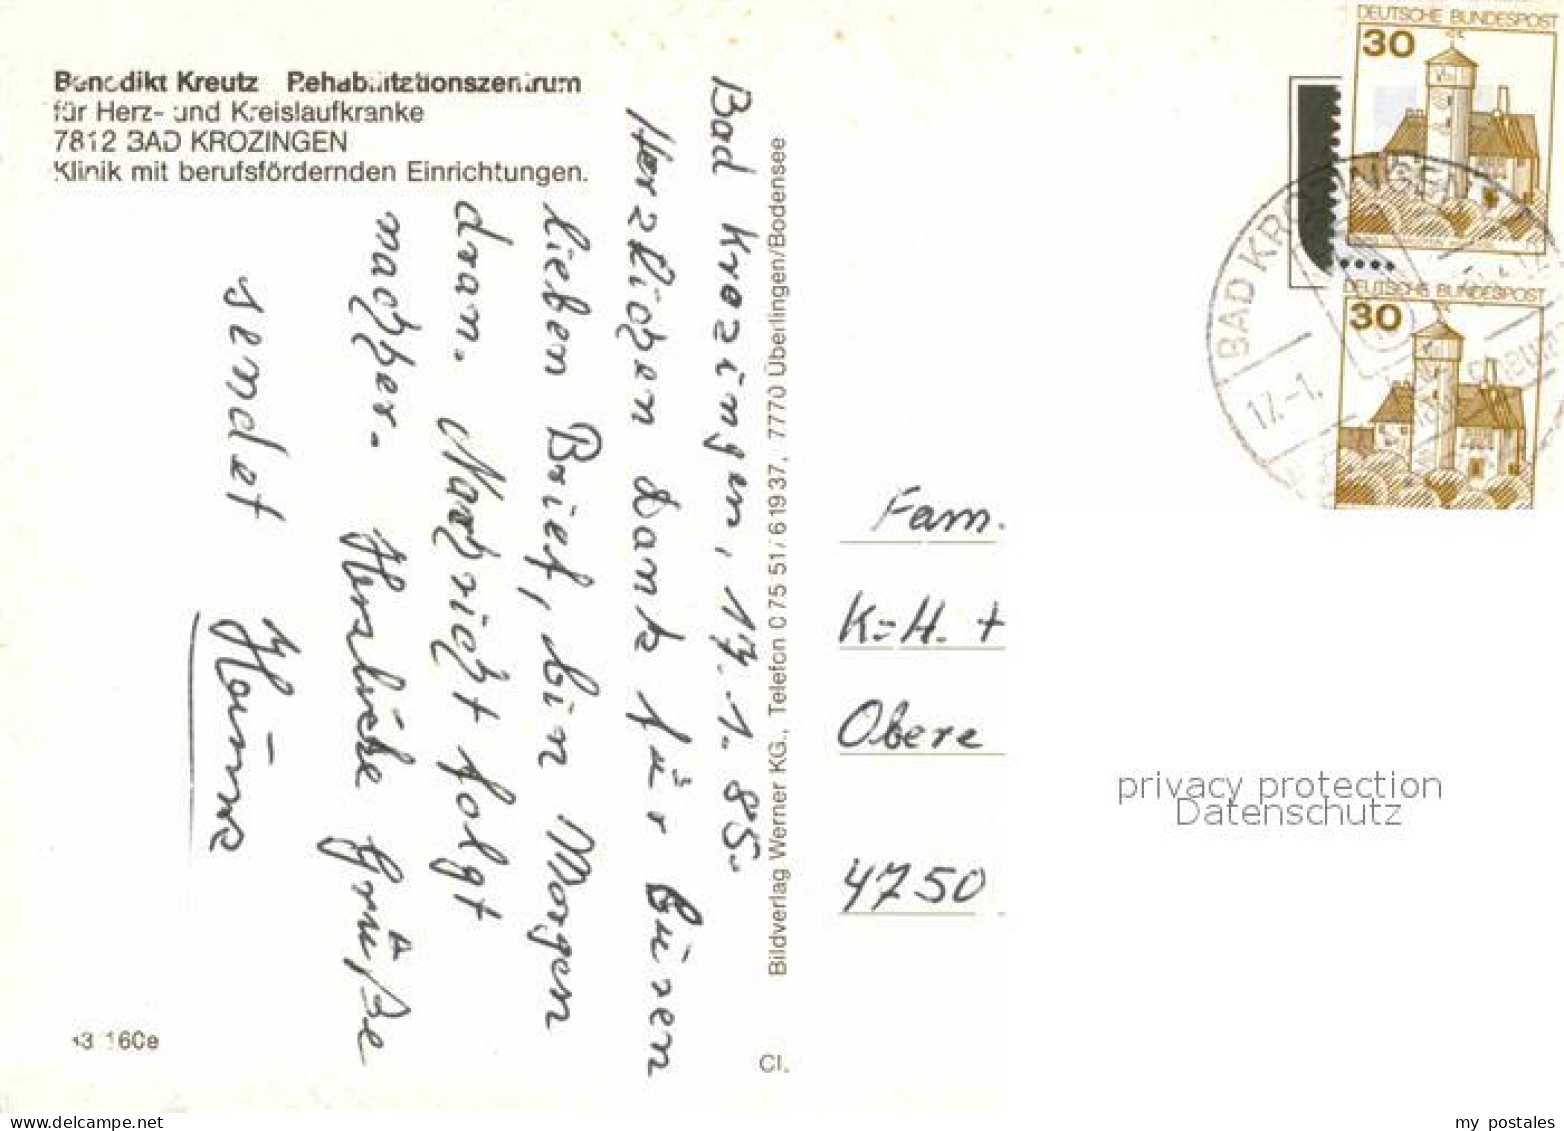 Benedikt Kreutz Rehabilitationszentrum
für Herz- und Kreislaufkranke
7812 BAD KROZINGEN
Klinik mit berufsfördernden Einrichtungen.
Bad Krozingen, 17.1.85.
Herzlichen Dank für Euren
lieben Brief, bin Morgen
dran. Nachricht folgt
nachher. Herzliche Grüße
sendet
Bildverlag Werner KG., Telefon 0 75 51 / 6 19 37, 7770 Überlingen/Bodensee
160e
Cl.
DEUTSCHE BUNDESPOST
30
DEUTSCHE BUNDESPOST
30
BAD KRO
17.-1.
Fam.
K.-H. +
Obere
4750
privacy protection
Datenschutz
my postales